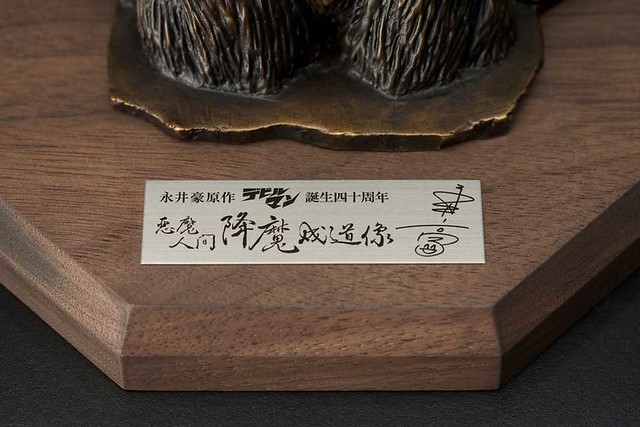 永井豪原作 デビルマン 誕生四十周年
悪魔人間 降魔成道像